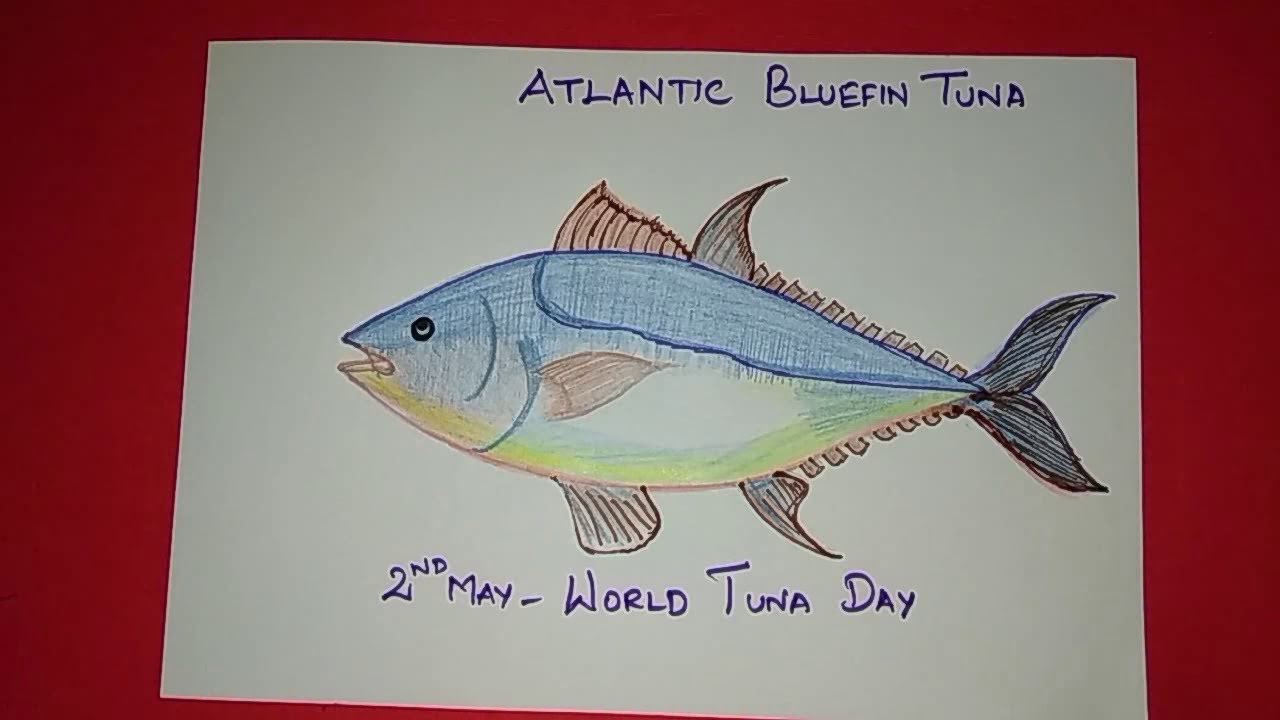 ATLANTIC BLUEFIN TUNA
2ND MAY - WORLD TUNA DAY